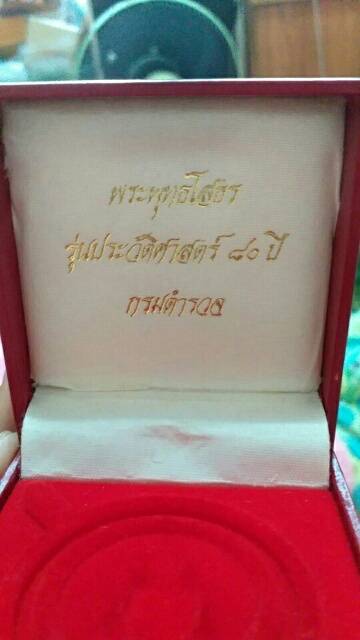 พระพุทธโสธร
รุ่นประวัติศาสตร์ ๘๐ ปี
กรมตำรวจ